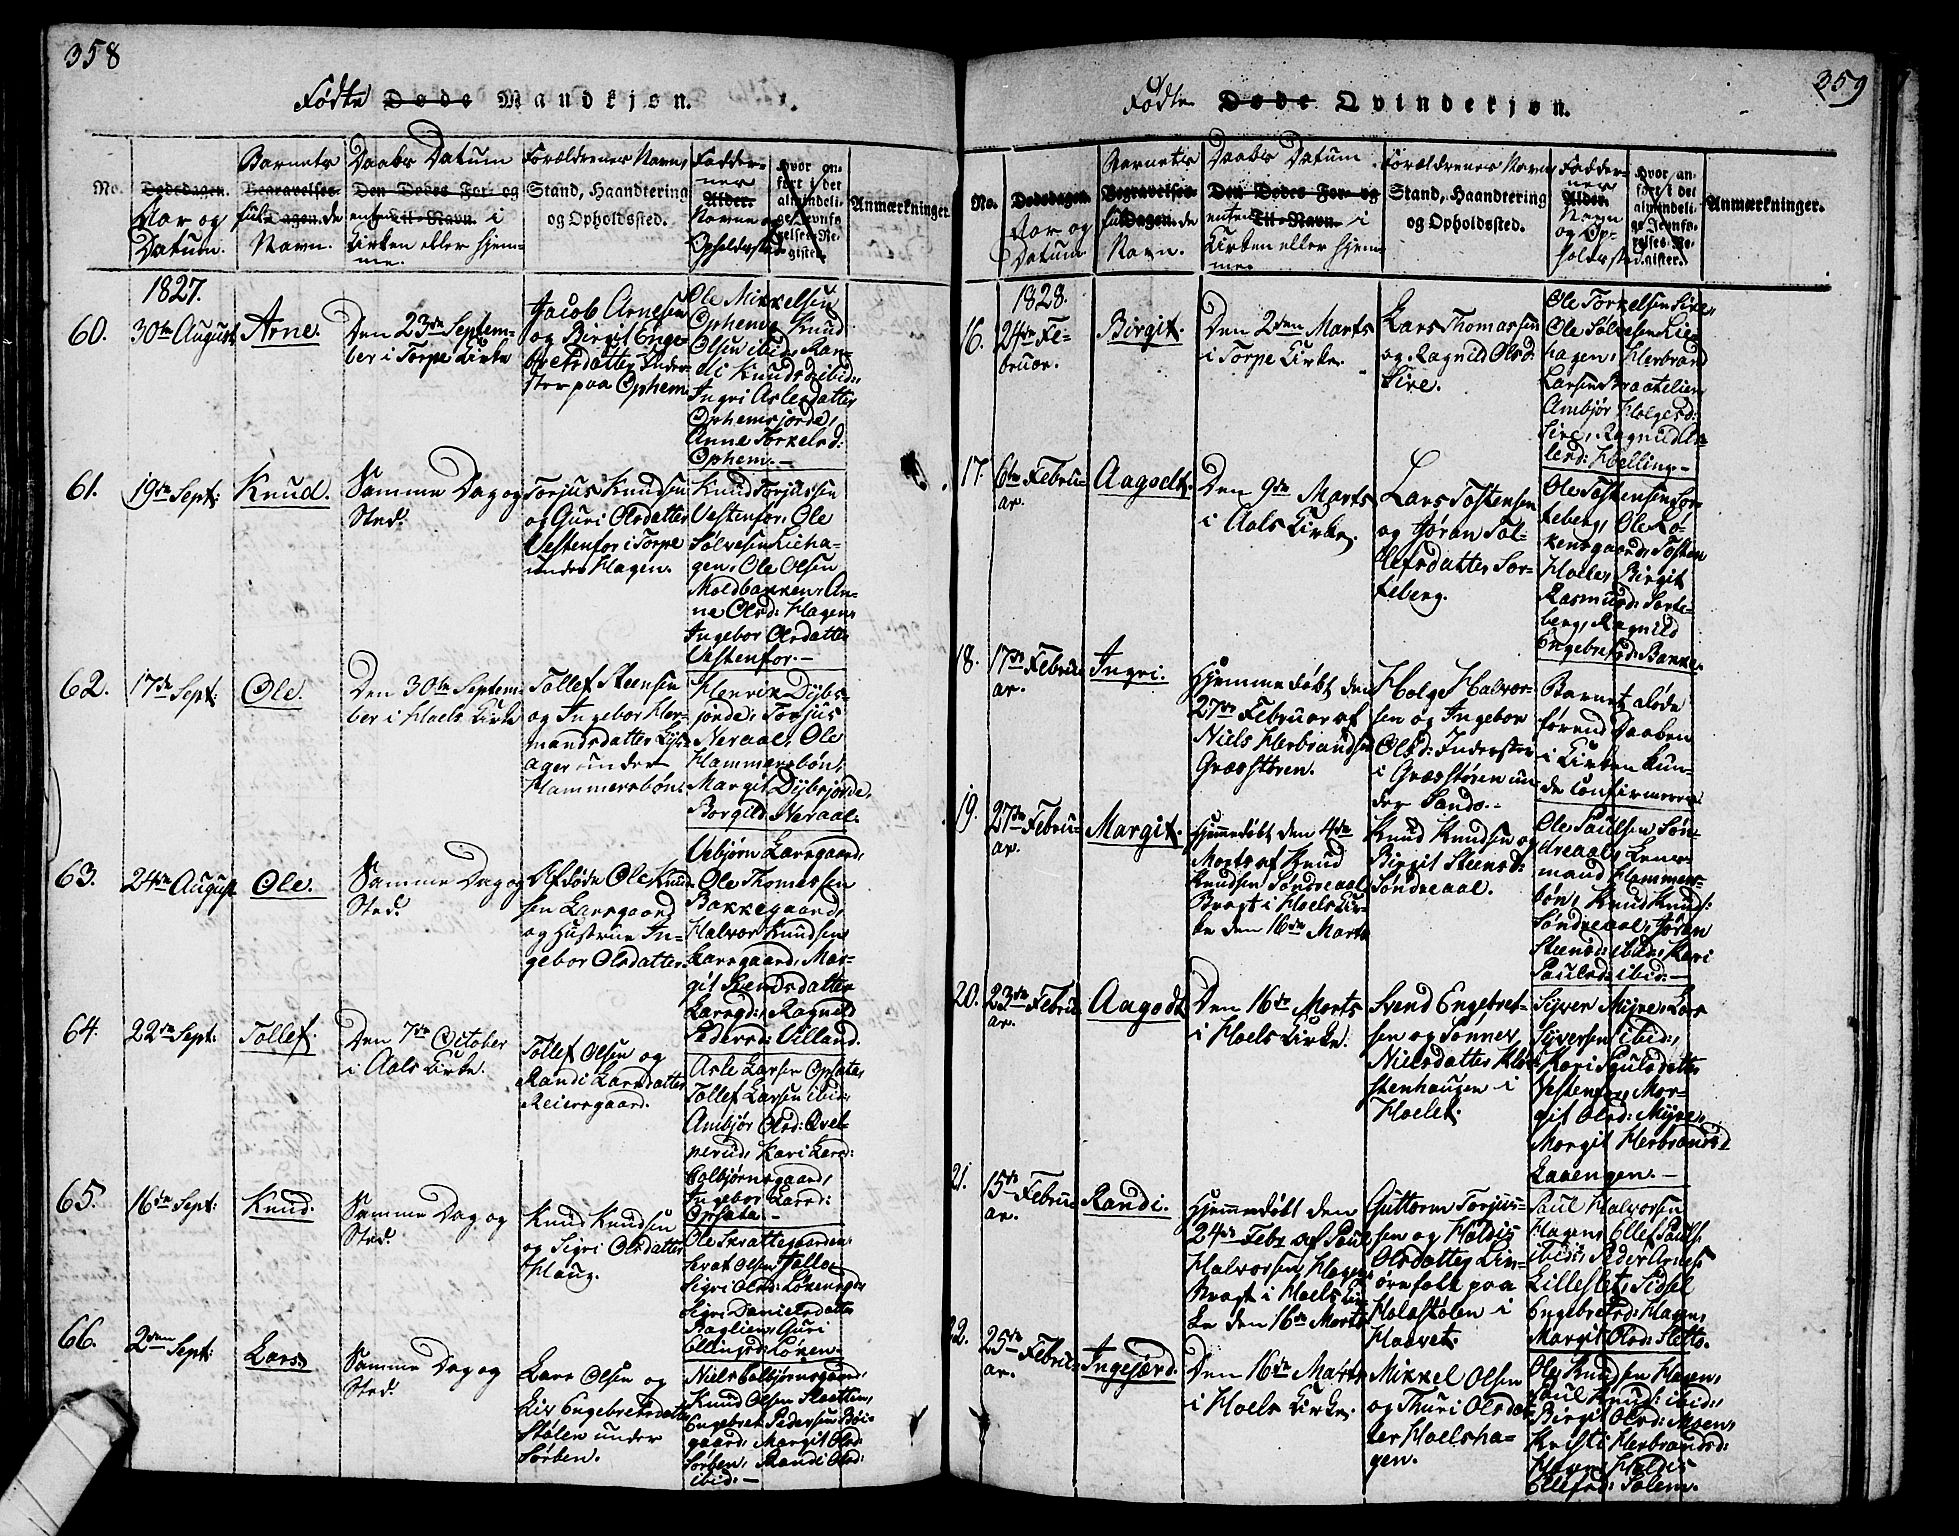 358
Fødte Døde Mandkjøn.
No.
Dødsdagen.
Aar og
Datum.
Barnets
Begravelses-
fulde dagen.
Navn.
Daabs Datum
Den Dødes For- og
enten Til-Navn. i
Kirken eller hjem-
me.
Forældrenes Navn,
Stand, Haandtering
og Opholdssted.
Fadder-
nes
Alder.
Navne og
Opholdssted
Hvor an-
ført i det
almindeli-
ge Jevnfø-
relses-Re-
gister.
Anmærkninger.
1827.
60.
30te August
Arne.
Den 23de Septem-
ber i Torpe Kirke
Jacob Arnesen
og Birgit Enge-
bretsdatter Inder-
ster paa Ophem
Ole Mikkelsen
Ophem, Knud
Olsen ibid:, Ran-
di Knudsd: ibid:,
Ingri Aslesdatter
Ophemsjorde,
Anne Torkelsd:
Ophem.-
61.
19de Sept:
Knud.
Samme Dag og
Sted.
Torjus Knudsen
og Guri Olsdatter
Vestenfor i Torpe
under Hagen.
Knud Torjussen
Vestenfor, Ole
Sølvesen Lieha-
gen, Ole Olsen
Moldbakken, An-
ne Olsd: Hagen,
Ingebor Olsdatter
Vestenfor.-
62.
17de Sept:
Ole.
Den 30te Septem-
ber i Hoels Kirke
Tollef Steensen
og Ingebor Her-
mandsdatter
ager under
Hammersbøn.
Henrik Dybs-
jorde, Torjus
Neraal, Ole
Hammersbøn,
Margit Dybsjorde,
Borgild Neraal.
63.
24de August
Ole.
Samme Dag og
Sted.
Afdøde Ole Knud-
sen Larsgaard
og Hustrue In-
gebor Olsdatter.
Vebjørn Larsgaard,
Ole Thomassen
Bakkegaard,
Halvor Knudsen
Larsgaard, Mar-
git Svendsdatter
Larsgd:, Ragnild
Pedersd: Villand.
64.
22de Sept:
Tollef.
Den 7de October
i Aals Kirke.
Tollef Olsen og
Randi Larsdatter
Reiersgaard.
Asle Larsen Opsata,
Tollef Larsen ibid:
Ambjør Olsd: Qvel-
perud, Kari Larsd:
Colbjørnsgaard,
Ingebor Larsd:
Opsata.-
65.
16de Sept:
Knud.
Samme Dag og
Sted.
Knud Knudsen
og Sigri Olsdatter
Houg.
Ole Skrattegarden,
Sigri Danielsdatter
Baglien, Guri
Ellingsd: Løken.-
66.
2den Sept:
Lars
Samme Dag og
Sted.
Lars Olsen og
Liv Engebretsdatter
Stølen under
Sørben.
Niels Colbjørnsgaard,
Knud Olsen
Engebret Pedersen Bøi-
gaard, Margit Olsd:
Sørben, Randi Olsd:
ibid:-
359
Fødte Døde Qvindekjøn.
No.
Dødsdagen.
Aar og
Datum
Barnets
Begravelses-
fulde dagen.
Navn.
Daabs Datum
Den Dødes For- og
enten Til-Navn. i
Kirken eller hjem-
me.
Forældrenes Navn,
Stand, Haandtering
og Opholdssted.
Fadder-
nes
Alder.
Navn
og Op-
holdssted.
Hvor an-
ført i det
almindeli-
ge Jevnfø-
relses-Re-
gister.
Anmærkninger.
1828.
16.
24de Fe-
bruar.
Birgit.
Den 2den Marts
i Torpe Kirke.
Lars Thomassen
og Ragnild Olsd:
Lire.
Ole Torkelsen Lire,
Ole Sølvesen Lie-
hagen, Herbrand
Larsen Braatelien
Ambjør Holgesd:
Lire, Ragnild Er-
lend: Helling.-
17.
6te Febru-
ar.
Aagodt.
Den 9de Marts
i Aals Kirke.
Lars Tostensen
og Jøran Tol-
lefsdatter Sor-
teberg.
Ole Tostensen Sor-
teberg, Ole Ro-
kensgaard, Tosten
Holle, Birgit
Rasmusd: Sorte-
berg, Ragnild
Engebretsd: Bakke.
18.
17de Febru-
ar.
Ingri.
Hjemmedøbt den
27de Februar af
Niels Herbrandsen
Græsstøren.
Holge Halvor-
sen og Ingebor
Olsd: Inderster
i Græsstøren un-
der Sando.-
Barnet døde
førend Daaben
i Kirken kun-
de confirmeres.
19.
27de Febru-
ar.
Margit.
Hjemmedøbt den 4de
Marts af Knud
Knudsen Søndreaal
Bragt i Hoels Kir-
ke den 16de Marts
Knud Knudsen og
Birgit Steensd:
Søndreaal.
Ole Paulsen Søn-
dreaal,
mand Hammers-
bøn, Knud Knuds:
Søndreaal, Jøran
Steensd: ibid:, Kari
Paulsd: ibid:-
20.
23de Febru-
ar.
Aagodt
Den 16de Marts
i Hoels Kirke.
Svend Engebret-
sen og Sønnev
Nielsdatter Klø-
stenhaugen i
Hoelet.
Syver Myre, Lars
Syversen ibid:,
Kari Paulsdatter
Vestenfor, Mar-
git Olsd: Myre,
Margit Herbrandsd
Laaengen.-
21.
15de Febru-
ar.
Randi.
Hjemmedøbt den
24de Febr af Paul
Halvorsen, Hagen
Bragt i Hoels Kir-
ke den 16de Marts
Guttorm Torjus-
sen og Haldis
Olsdatter, Lin-
ørnfolk paa
Holestølen i
Haavet.
Paul Halvorsen
Hagen, Ellef Pauls:
ibid:, Peder Arnes:
Lilleslet, Sidsel
Engebretsd: Hagen,
Margit Olsd: Slette.
22.
25de Febru-
ar.
Ingefærd.
Den 16de Marts
i Hoels Kirke.
Mikkel Olsen
og Thuri Olsdat-
ter Hoelsha-
gen.
Ole Knudsen Hagen,
Paul Knuds: ibid:,
Birgit Olsd: Moen,
Kristi Herbrandsd:
Haldis
Ellefsd: Solem.